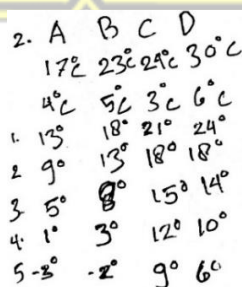 2. A B C D
17°C 23°C 24°C 30°C
4°C 5°C 3°C 6°C
1. 13° 18° 21° 24°
2 9° 13° 18° 18°
3. 5° 8° 15° 14°
4. 1° 3° 12° 10°
5 -3° -2° 9° 6°